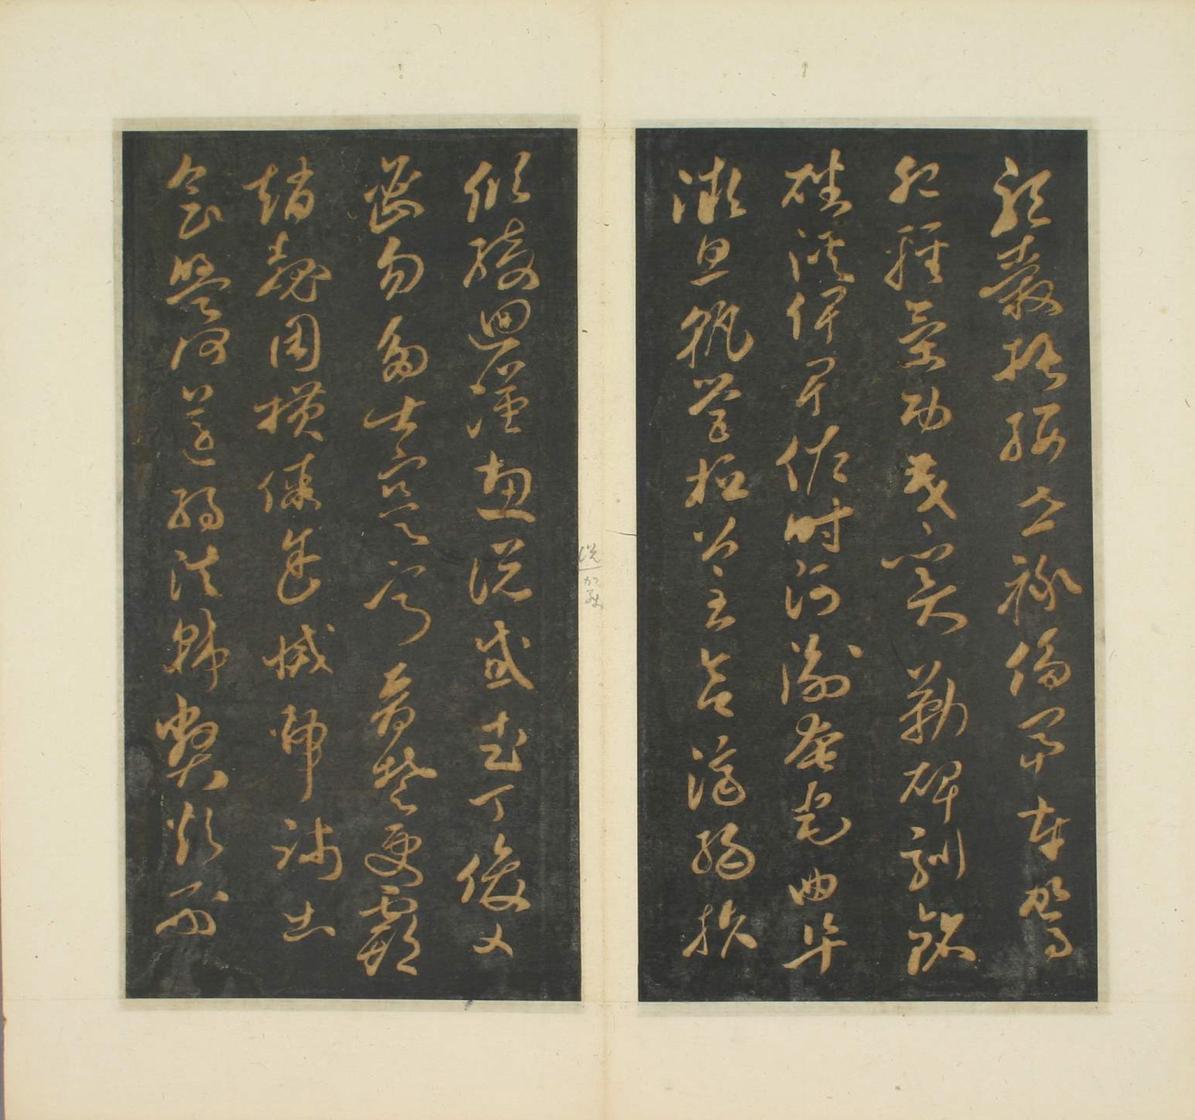 驅轂振纓世祿侈富車駕
肥輕策功茂實勒碑刻銘
磻溪伊尹佐時阿衡奄宅曲阜
微旦孰營桓公匡合濟弱扶
傾綺迴漢惠說感武丁俊乂
密勿多士寔寧晉楚更霸
趙魏困橫假途滅虢踐土
會盟何遵約法韓弊煩刑